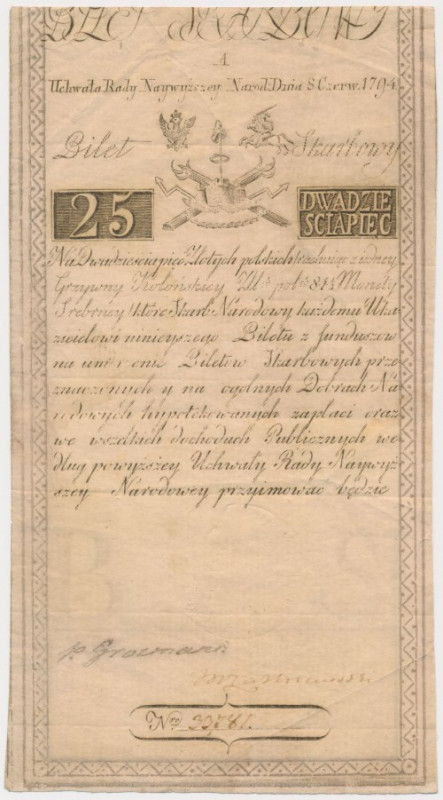 A
Uchwała Rady Naywyższey Narod: Dnia 8 Czerw. 1794
Bilet Skarbowy
25 DWADZIE ŚCIAPIĘC
Na Dwadzieściapięć Złotych polskich rachuiąc z iedney
Grzywny Kolońskiey Zł pol 84½ Monety
Srebrney które Skarb Narodowy każdemu Oka-
zicielowi ninieyszego Biletu z funduszow
na umorzenie Biletow Skarbowych prze-
znaczonych y na ogulnych Dobrach Na-
rodowych hypotekowanych zapłaci oraz
we wszelkich dochodach Publicznych we-
dług powyższey Uchwały Rady Naywyż-
szey Narodowey przyimować będzie
B S
Nro 33781.